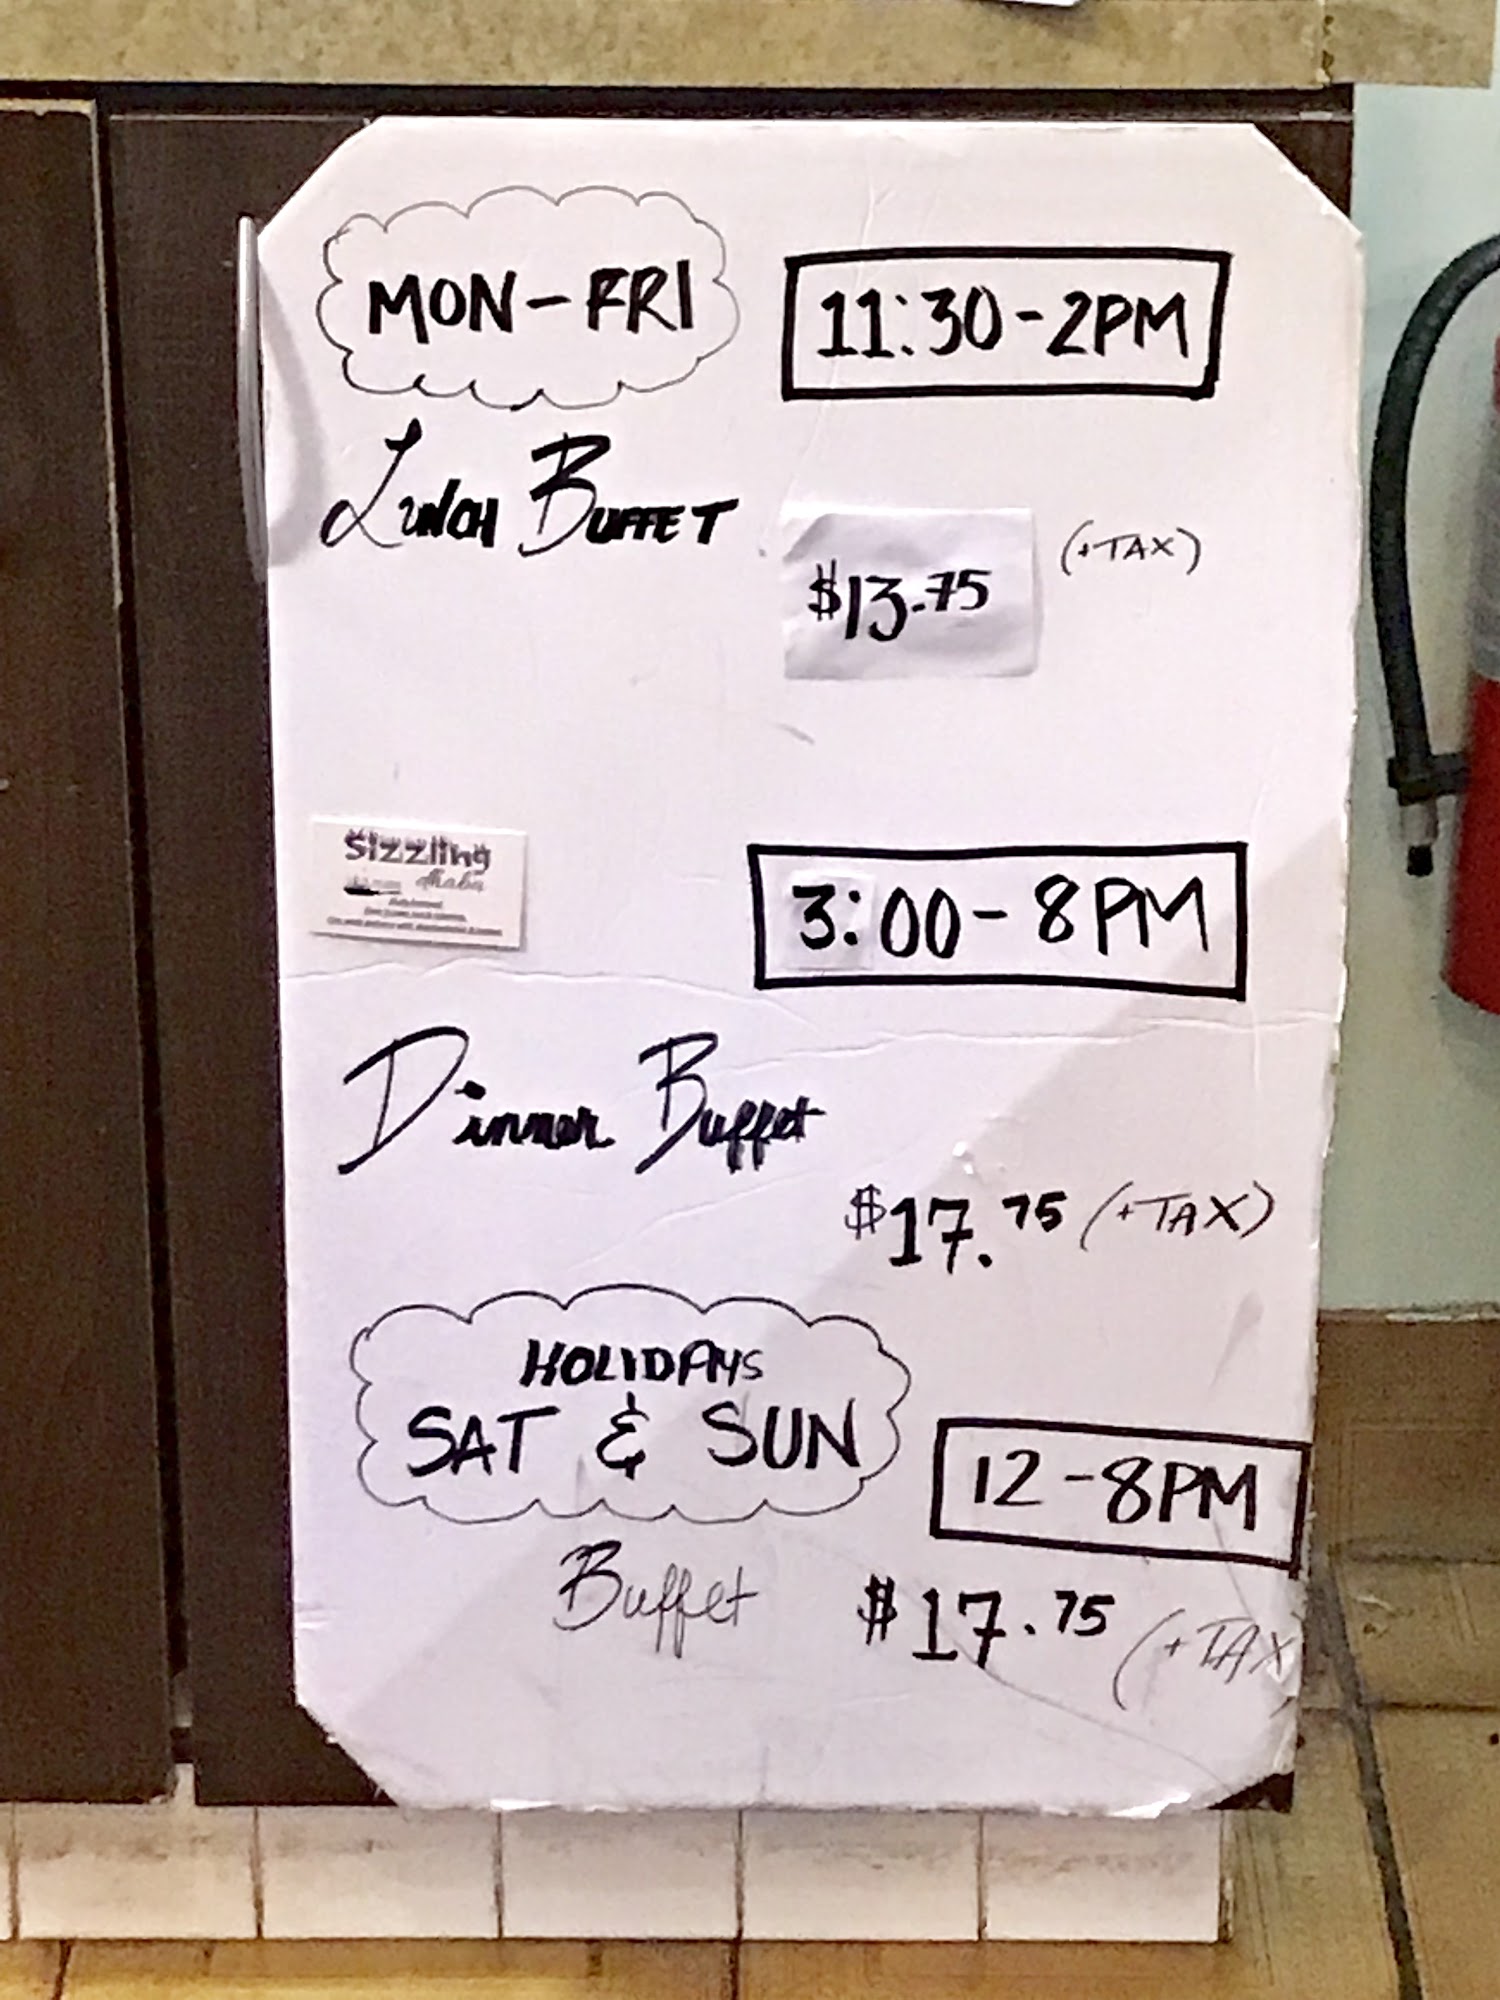 MON-FRI
11:30-2PM
LUNCH BUFFET
$13.75
(+TAX)
Sizzling
3:00-8PM
Dinner Buffet
$17.75 (+TAX)
HOLIDAYS
SAT & SUN
12-8PM
Buffet
$17.75 (+TAX